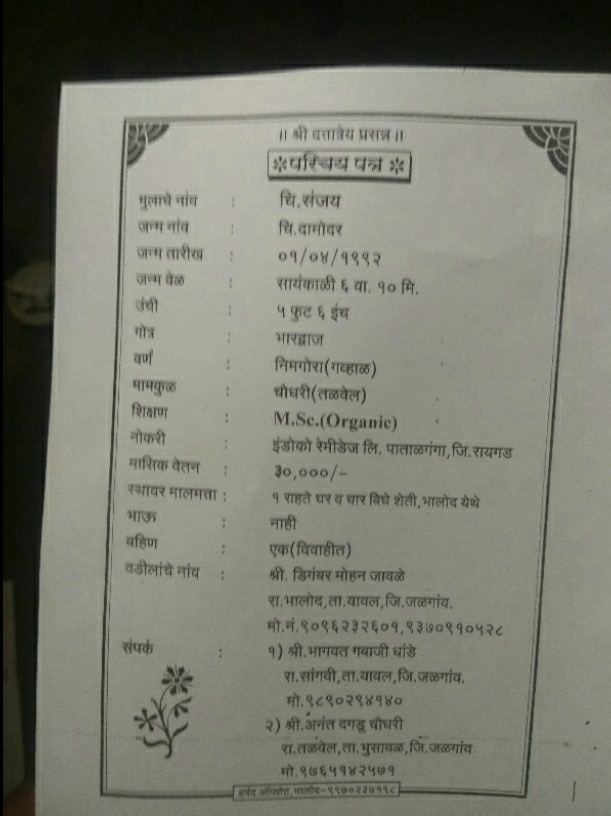 ॥ श्री दत्तात्रेय प्रसन्न ॥
परिचय पत्र
मुलाचे नांव : चि.संजय
जन्म नांव : चि.दामोदर
जन्म तारीख : ०१/०४/१९९२
जन्म वेळ : सायंकाळी ६ वा. १० मि.
उंची : ५ फुट ६ इंच
गोत्र : भारद्वाज
वर्ण : निमगोरा(गव्हाळ)
मामकुळ : चौधरी(तळवेल)
शिक्षण : M.Sc.(Organic)
नोकरी : इंडोको रेमीडेज लि. पाताळगंगा,जि.रायगड
मासिक वेतन : ३०,०००/-
स्थावर मालमत्ता : १ राहते घर व चार बिघे शेती,भालोद येथे
भाऊ : नाही
बहिण : एक(विवाहीत)
वडीलांचे नांव : श्री. डिगंबर मोहन जावळे
रा.भालोद,ता.यावल,जि.जळगांव.
मो.नं.९०९६२३२६०१,९३७०९१०५२८
संपर्क : १) श्री.भागवत गबाजी धांडे
रा.सांगवी,ता.यावल,जि.जळगांव.
मो.९८९०२९४१४०
२) श्री.अनंत दगडू चौधरी
रा.तळवेल,ता.भुसावळ,जि.जळगांव
मो.९७६५१४२५७१
हर्षद ऑफसेट,भालोद-९९७०२३७१९८